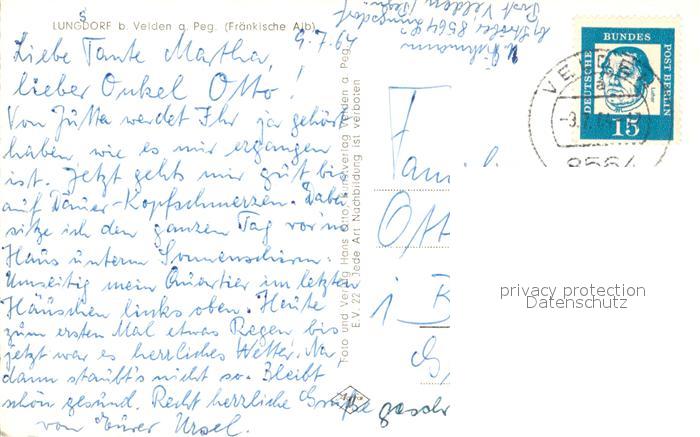 LUNGSDORF b. Velden a. Peg. (Fränkische Alb)
9.7.64
Liebe Tante Martha,
lieber Onkel Otto!
Von Jutta werdet Ihr ja gehört
haben, wie es mir ergangen
ist. Jetzt gehts mir gut bis
auf Dauer-Kopfschmerzen. Dabei
sitze ich den ganzen Tag vorm
Haus unterm Sonnenschirm.
Umseitig mein Quartier im letzten
Häuschen links oben. Heute
zum ersten Mal etwas Regen, bis
jetzt war es herrliches Wetter. Na
dann staubt's nicht so. Bleibt
schön gesund. Recht herzliche Grüße
von Eurer Ursel.
Foto und Verlag Hans Otto, Kunstverlag Velden a. Peg.
E.V. 22 Jede Art Nachbildung ist verboten
8564 Lungsdorf
Post Velden
Fami
Ott
DEUTSCHE BUNDESPOST BERLIN
Luther
15
8564
privacy protection
Datenschutz